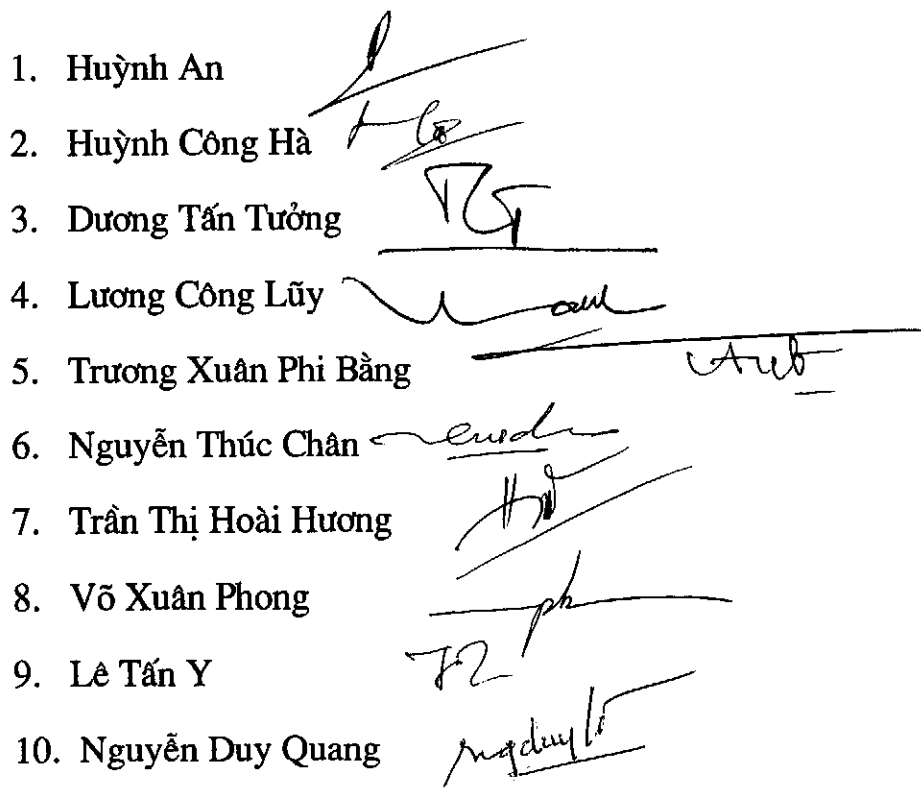 1. Huỳnh An
2. Huỳnh Công Hà
3. Dương Tấn Tưởng
4. Lương Công Lũy
5. Trương Xuân Phi Bằng
6. Nguyễn Thúc Chân
7. Trần Thị Hoài Hương
8. Võ Xuân Phong
9. Lê Tấn Y
10. Nguyễn Duy Quang